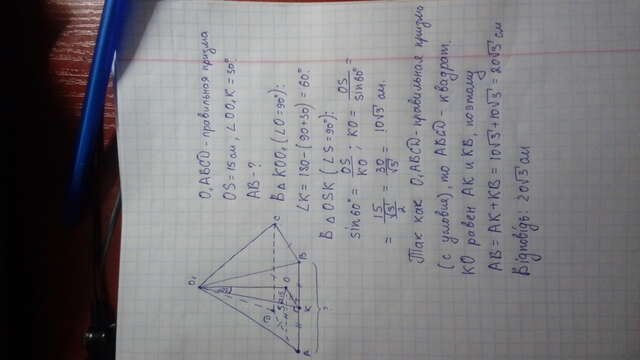 O₁ABCD - правильная призма
OS = 15 см, ∠OO₁K = 30°.
AB - ?
В △ KOO₁ (∠O = 90°):
∠K = 180 - (90 + 30) = 60°.
В △ OSK (∠S = 90°):
sin60° = OS/KO ; KO = OS/sin60° =
= 15/(√3/2) = 30/√3 = 10√3 см.
Так как O₁ABCD - правильная призма
(с условия), то ABCD - квадрат.
KO равен AK и KB, поэтому
AB = AK + KB = 10√3 + 10√3 = 20√3 см
Відповідь: 20√3 см
O₁
30°
D
C
S
15
O
A
K
B
?